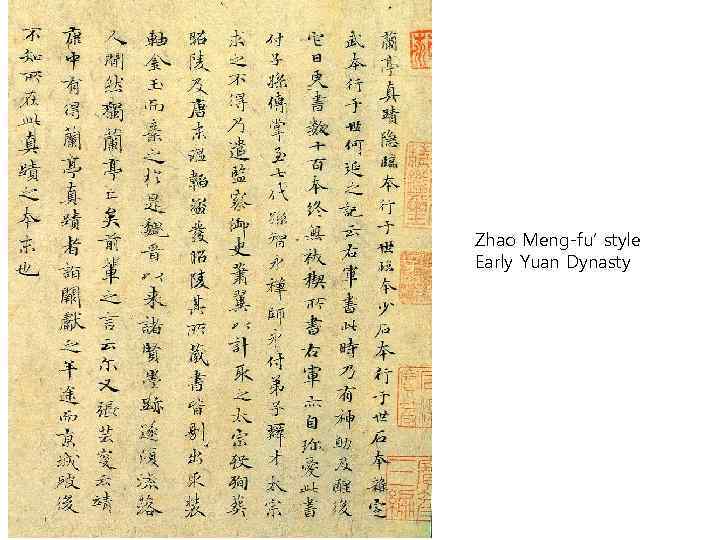 蘭亭真蹟隱臨本行于世臨本少石本行于世石本雜定
武本行于世何延之記云右軍書此時乃有神助及醒後
它日更書數十百本終無祓禊所書右軍亦自珍愛此書
付子孫傳掌至七代孫智永禪師永付弟子辯才太宗
求之不得乃遣監察御史蕭翼以計取之太宗歿殉葬
昭陵及唐末溫韜盜發昭陵其所藏書皆剔出取裝
軸金玉而棄之於是魏晉以来諸賢墨跡遂復流落
人間然獨蘭亭亡矣前輩之言云尔又張芸叟云靖
康中有得蘭亭真蹟者詣闕獻之半途而京城破後
不知所在此真蹟之本末也
Zhao Meng-fu’ style
Early Yuan Dynasty